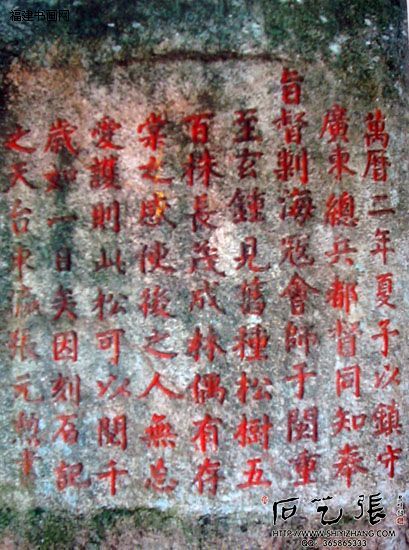 福建书画网
萬曆二年夏予以鎮守
廣東總兵都督同知奉
旨督剿海寇會師于閩重
至玄鍾見舊種松樹五
百株長茂成林偶有存
棠之感使後之人無忘
愛護則此松可以閱千
歲如一日矣因刻石記
之天台東瀛張元勳書
石艺張
WWW.SHIYIZHANG.COM
QQ:365865333